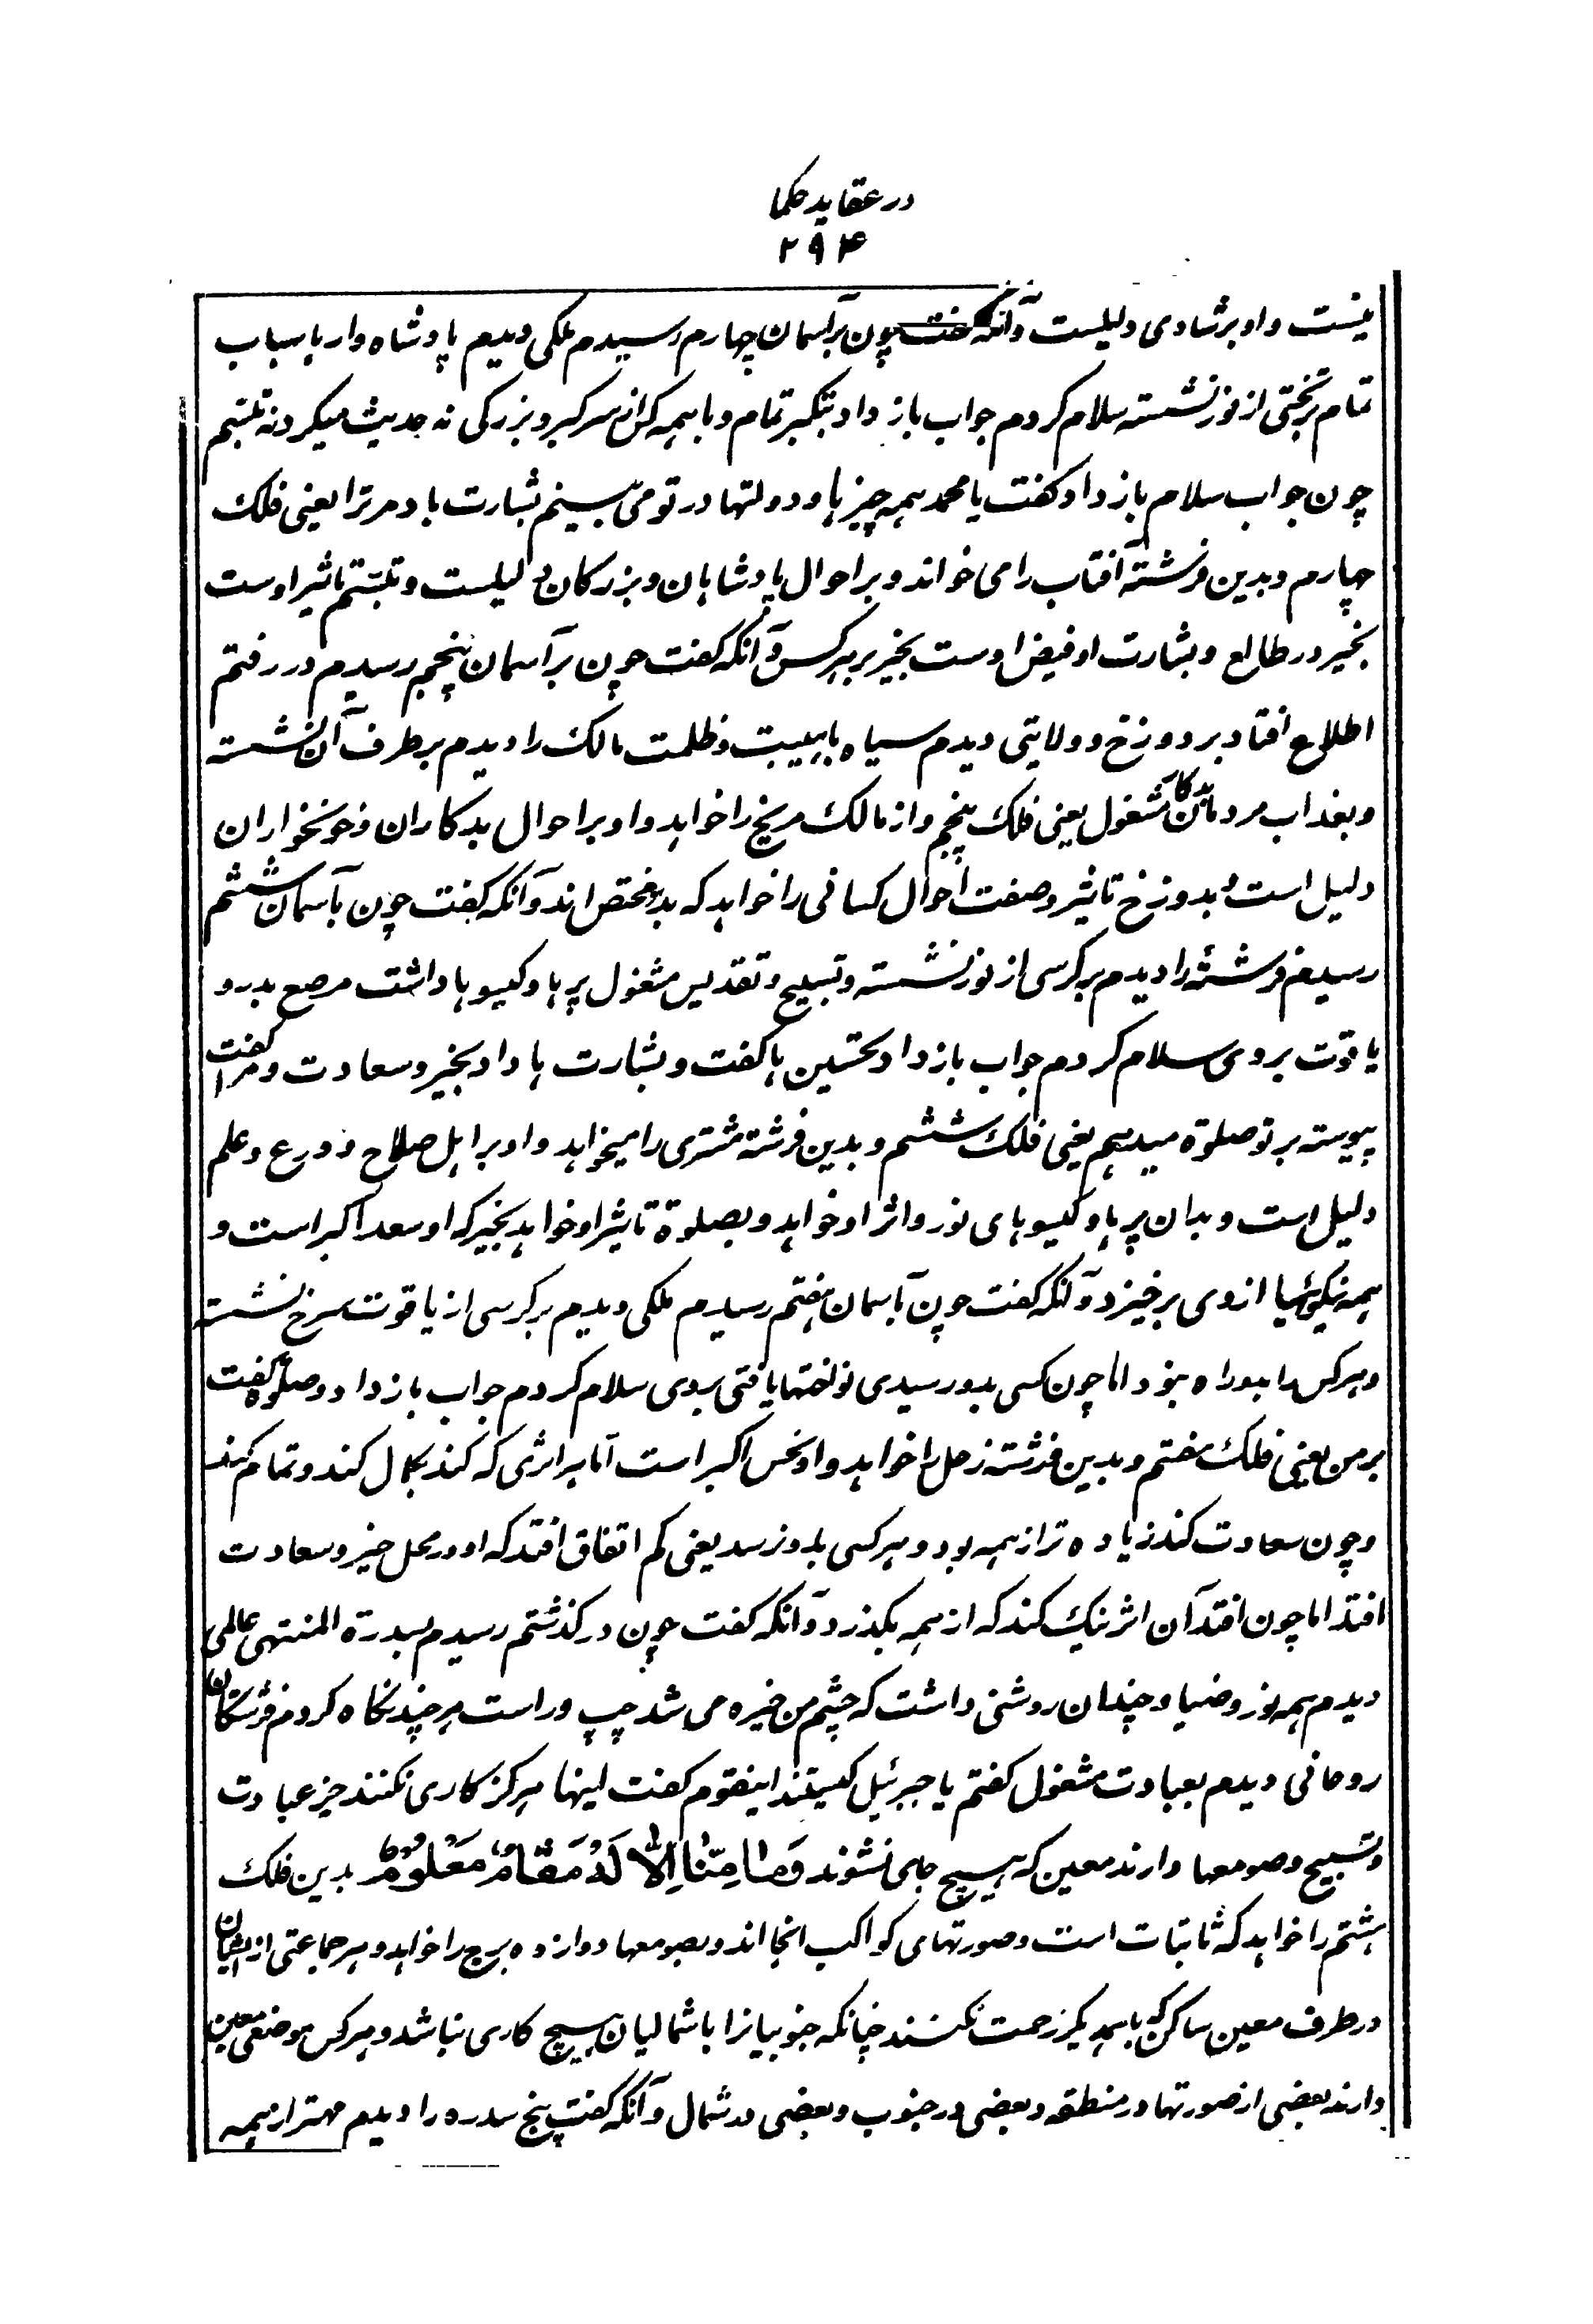 در عقاید حکما
۲۹۴
نیست و او بر شادی دلیلست وآنکه گفت چون بر آسمان چهارم رسیدم ملکی دیدم پادشاه وار با سباب
تمام بر تختی از نور نشسته سلام کردم جواب باز داد بتکبر تمام و با همه کس از سر کبر و بزرکی نه حدیث میکرد نه تبسم
چون جواب سلام باز داد کفت یا محمد همه چیزها و دولتها در تو می بینم بشارت باد مر ترا یعنی فلک
چهارم و بدین فرشته آفتاب را می خواند و بر احوال پادشاهان و بزرکان دلیلست و تبسم تاثیر اوست
بخیر در طالع و بشارت او فیض اوست بخیر بر هرکس وآنکه کفت چون بر آسمان پنجم رسیدم در رفتم
اطلاع افتاد بر دوزخ و ولایتی دیدم سیاه باهیبت و ظلمت مالک را دیدم بر طرف آن نشسته
و بعذاب مردمان بدکار مشغول یعنی فلک پنجم و از مالک مریخ را خواهد و او بر احوال بدکاران و خونخواران
دلیل است و بدوزخ تاثیر و صفت احوال کسانی را خواهد که بدو مختص اند وآنکه کفت چون بآسمان ششم
رسیدم فرشتهٔ را دیدم بر کرسی از نور نشسته و تسبیح و تقدیس مشغول پرها و کیسوها داشت مرصع بدر و
یاقوت بروی سلام کردم جواب باز داد تحسین ها کفت و بشارت ها داد بخیر و سعادت و مرا کفت
پیوسته بر تو صلوة میدهم یعنی فلک ششم و بدین فرشته مشتری را میخواهد و او بر اهل صلاح و ورع و علم
دلیل است و بدان پرها و کیسوهای نور و اثر او خواهد و بصلوة تاثیر او خواهد بخیر که او سعد اکبر است و
همه نیکوئیها از وی برخیزد وآنکه کفت چون بآسمان هفتم رسیدم ملکی دیدم بر کرسی از یاقوت سرخ نشسته
و هرکس را بدو راه نبود اما چون کسی بدو رسیدی نواختها یافتی بروی سلام کردم جواب باز داد و صلوة کفت
بر من یعنی فلک هفتم و بدین فرشته زحل را خواهد و او نحس اکبر است اما هر اثری که کند بکمال کند و تمام کند
و چون سعادت کند زیاده تر از همه بود و هرکسی بدو نرسد یعنی کم اتفاق افتد که او در محل خیر و سعادت
افتد اما چون افتد آن اثر نیک کند که از همه بکذرد وآنکه کفت چون در کذشتم رسیدم بسدرة المنتهی عالمی
دیدم همه نور و ضیا و چندان روشنی داشت که چشم من خیره می شد چپ و راست هر چند نکاه کردم فرشتکان
روحانی دیدم بعبادت مشغول کفتم یا جبرئیل کیستند اینقوم کفت اینها هرکز کاری نکنند جز عبادت
و تسبیح و صومعها دارند معین که هیچ جای نشوند وَمٰا مِنّٰا اِلّٰا لَهُ مَقٰامٌ مَعْلُومٌ بدین فلک
هشتم را خواهد که ثابتات است و صورتهای کواکب انجا اند و بصومعها دوازده برج را خواهد و هر جماعتی از ایشان
در طرف معین ساکن که با یکدیکر زحمت نکنند چنانکه جنوبیانرا با شمالیان هیچ کاری نباشد و هرکس موضعی معین
دارند بعضی از صورتها در منطقه و بعضی در جنوب و بعضی در شمال وآنکه کفت پنج سدره را دیدم مهتر از همه